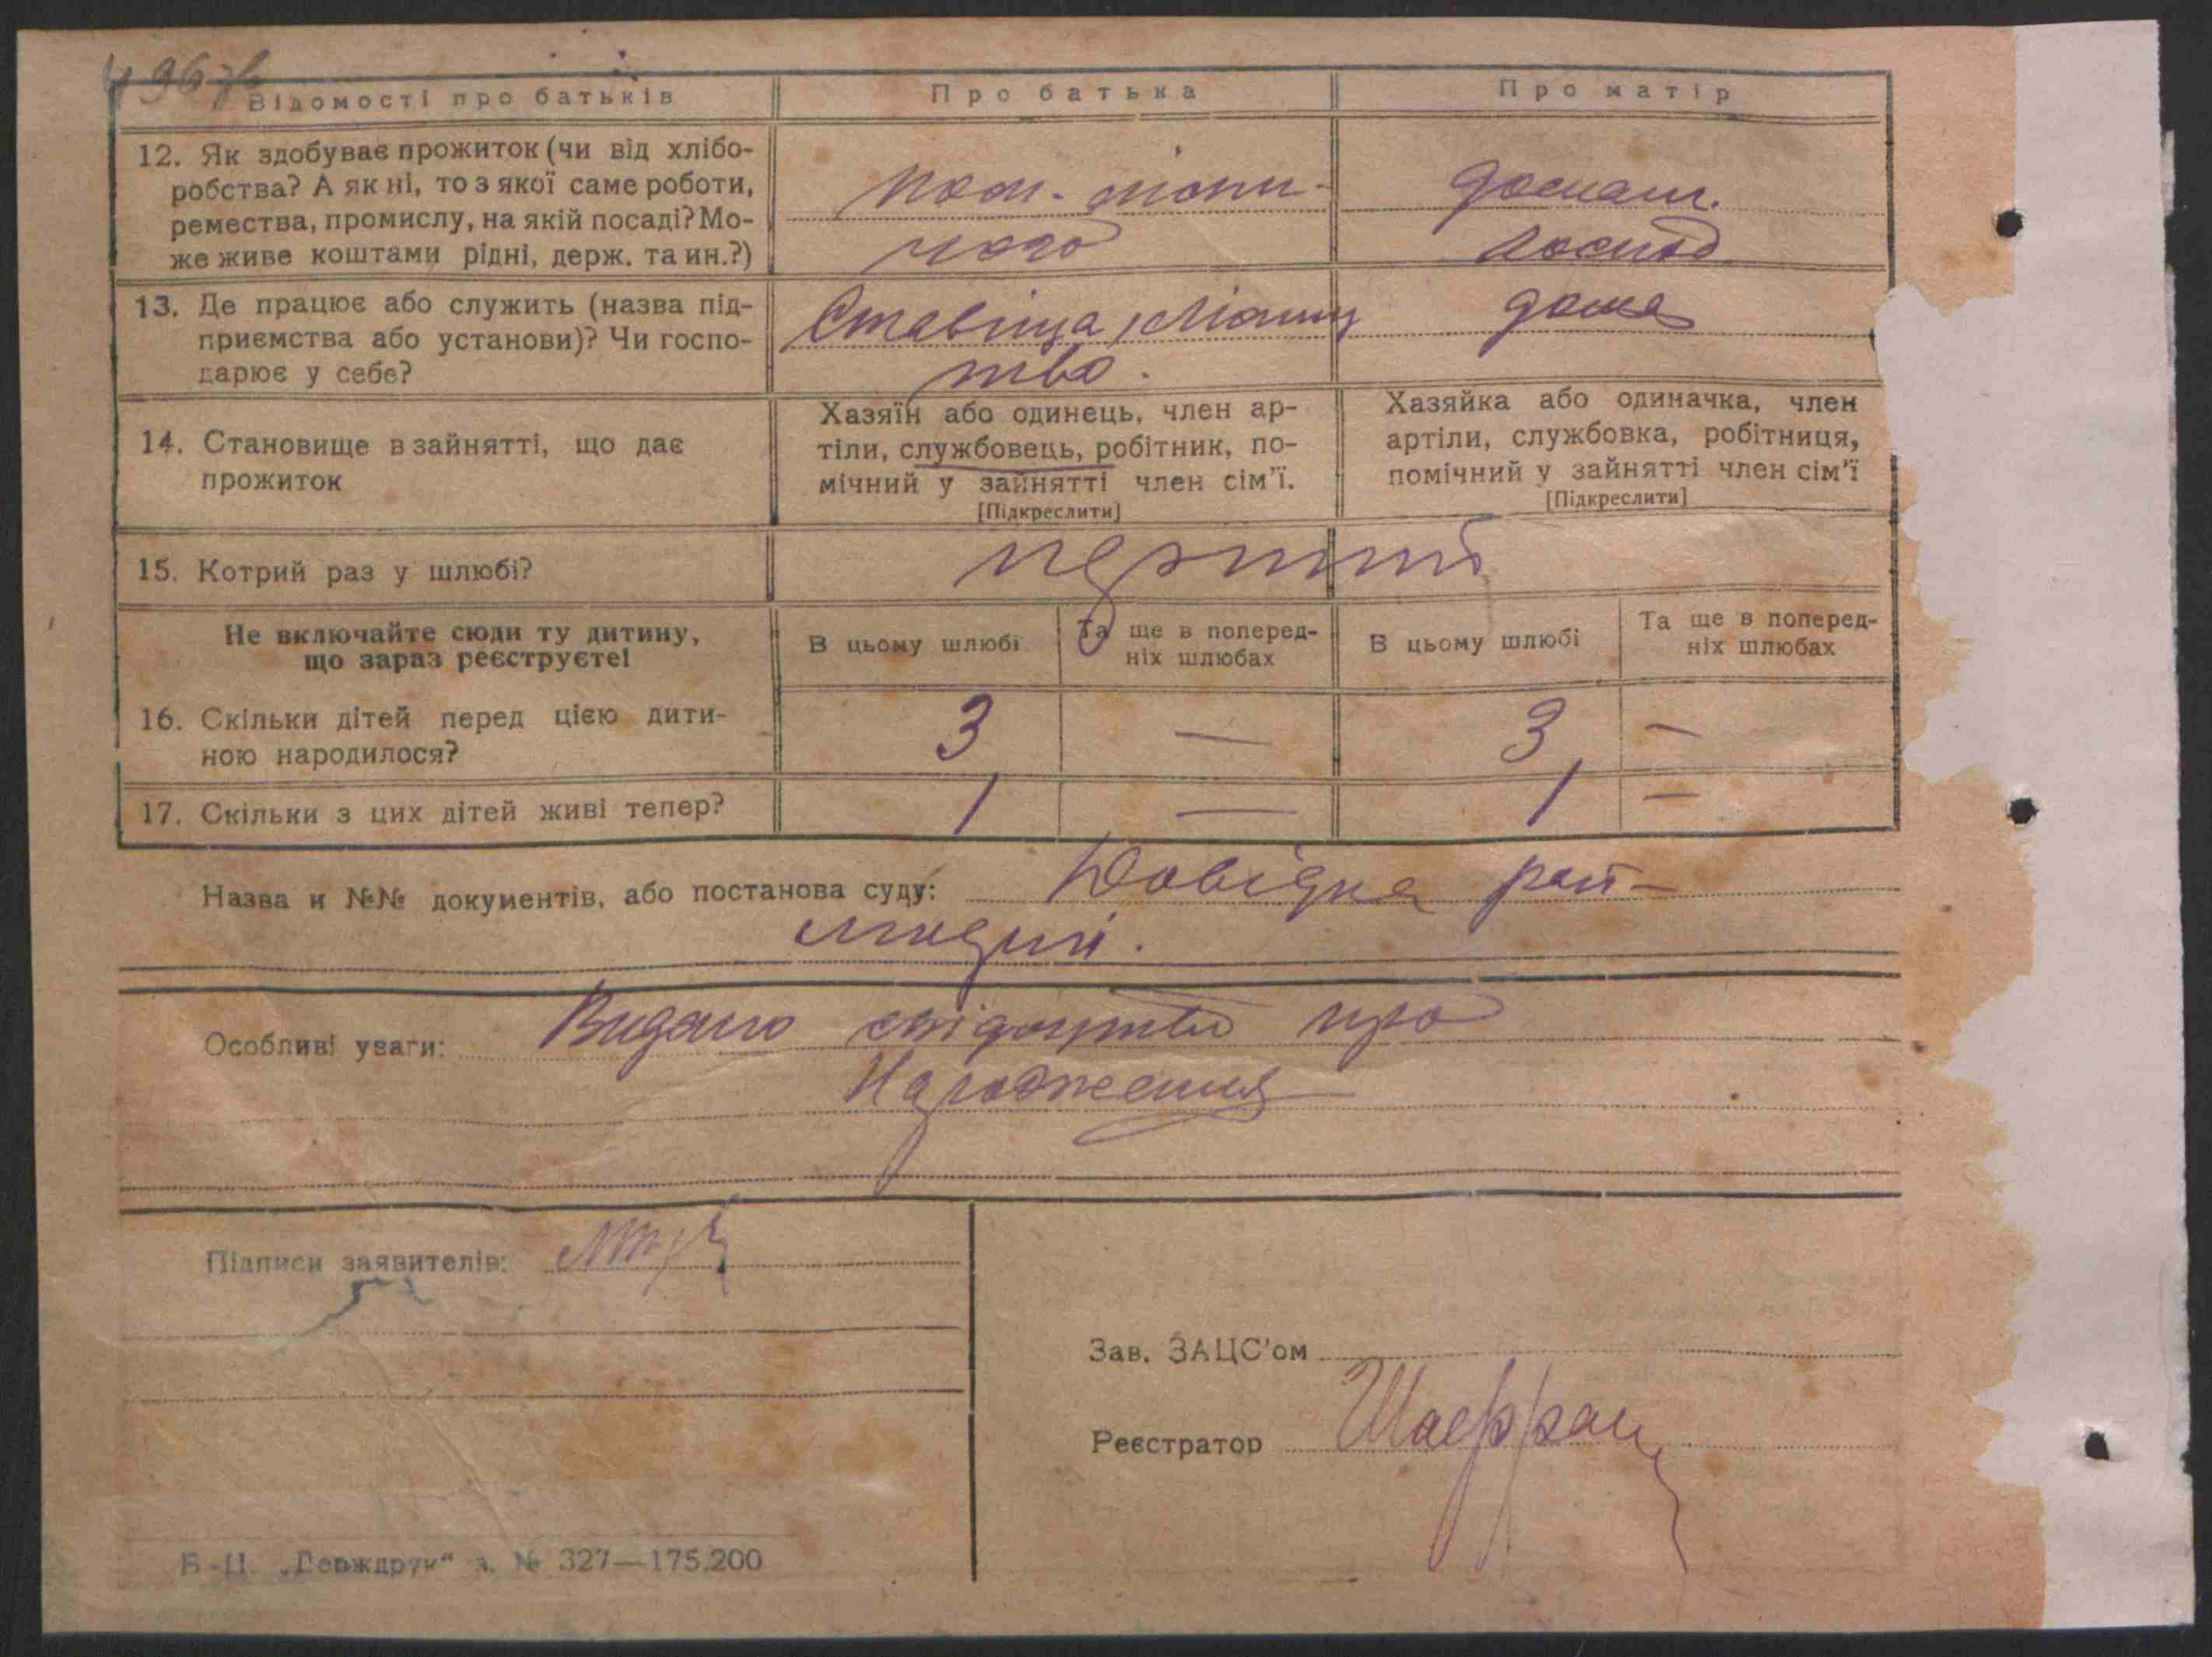 Відомості про батьків
Про батька
Про матір
12. Як здобуває прожиток (чи від хлібо-
робства? А як ні, то з якої саме роботи,
ремества, промислу, на якій посаді? Мо-
же живе коштами рідні, держ. та ин.?)
пом.
домашн.
господ
13. Де працює або служить (назва під-
приємства або установи)? Чи госпо-
дарює у себе?
Ставища
тво.
дома
14. Становище в зайнятті, що дає
прожиток
Хазяїн або одинець, член ар-
тіли, службовець, робітник, по-
мічний у зайнятті член сім'ї.
[Підкреслити]
Хазяйка або одиначка, член
артіли, службовка, робітниця,
помічний у зайнятті член сім'ї
[Підкреслити]
15. Котрий раз у шлюбі?
перший
Не включайте сюди ту дитину,
що зараз реєструєте!
В цьому шлюбі
Та ще в поперед-
ніх шлюбах
В цьому шлюбі
Та ще в поперед-
ніх шлюбах
16. Скільки дітей перед цією дити-
ною народилося?
3 — 3 —
17. Скільки з цих дітей живі тепер?
1 — 1 —
Назва и №№ документів, або постанова суду: Довідка рай-
Особливі уваги: Видано свідоцтво про
Народження
Підписи заявителів:
Зав. ЗАЦС'ом
Реєстратор
Б-Ц. „Держдрук" з. № 327—175.200